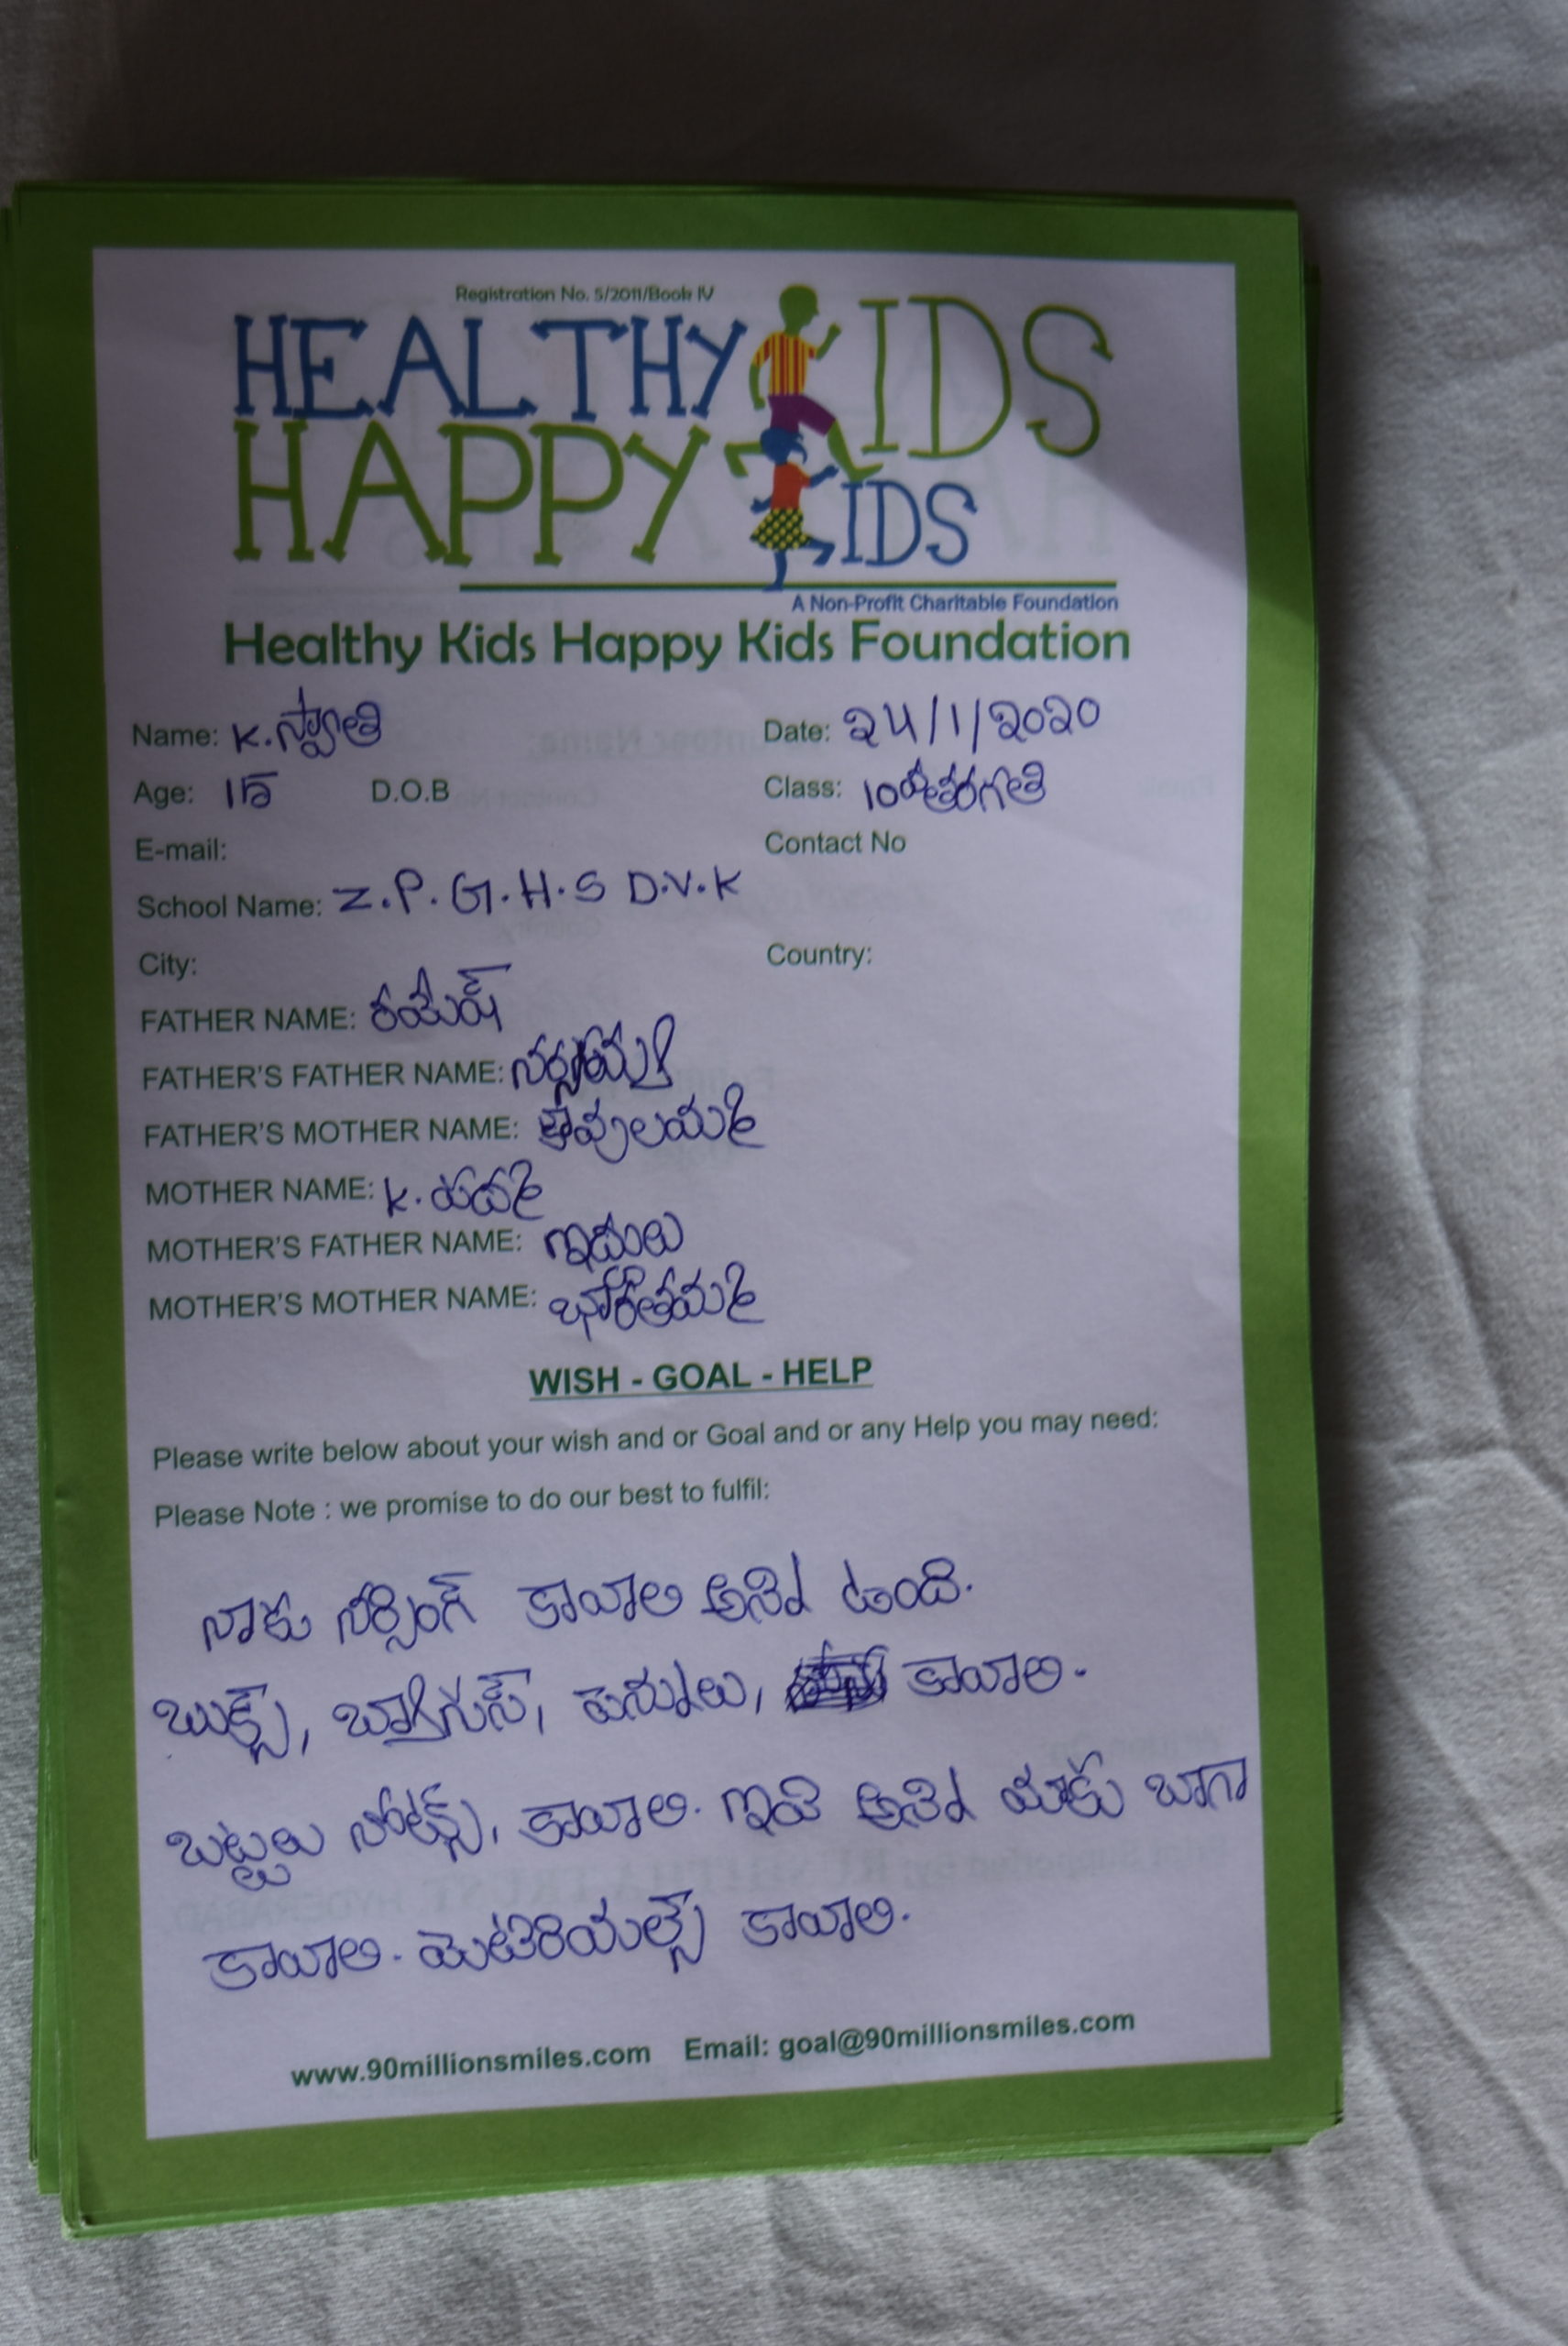 Registration No. 5/2011/Book IV
HEALTHY KIDS
HAPPY KIDS
A Non-Profit Charitable Foundation
Healthy Kids Happy Kids Foundation
Name: K. స్వాతి Date: 24/1/2020
Age: 15 D.O.B Class: 10వతరగతి
E-mail: Contact No
School Name: Z.P.G.H.S D.V.K
City: Country:
FATHER NAME: రమేష్
FATHER'S FATHER NAME:
FATHER'S MOTHER NAME:
MOTHER NAME: K. పద్మ
MOTHER'S FATHER NAME:
MOTHER'S MOTHER NAME: భారతమ్మ
WISH - GOAL - HELP
Please write below about your wish and or Goal and or any Help you may need:
Please Note : we promise to do our best to fulfil:
నాకు నర్సింగ్ కావాలి అని ఉంది.
బుక్స్, బ్యాగ్స్, పెన్నులు, కావాలి.
బట్టలు నోట్స్, కావాలి. ఇవి అన్ని మాకు బాగా
కావాలి. మెటిరియల్స్ కావాలి.
www.90millionsmiles.com Email: goal@90millionsmiles.com